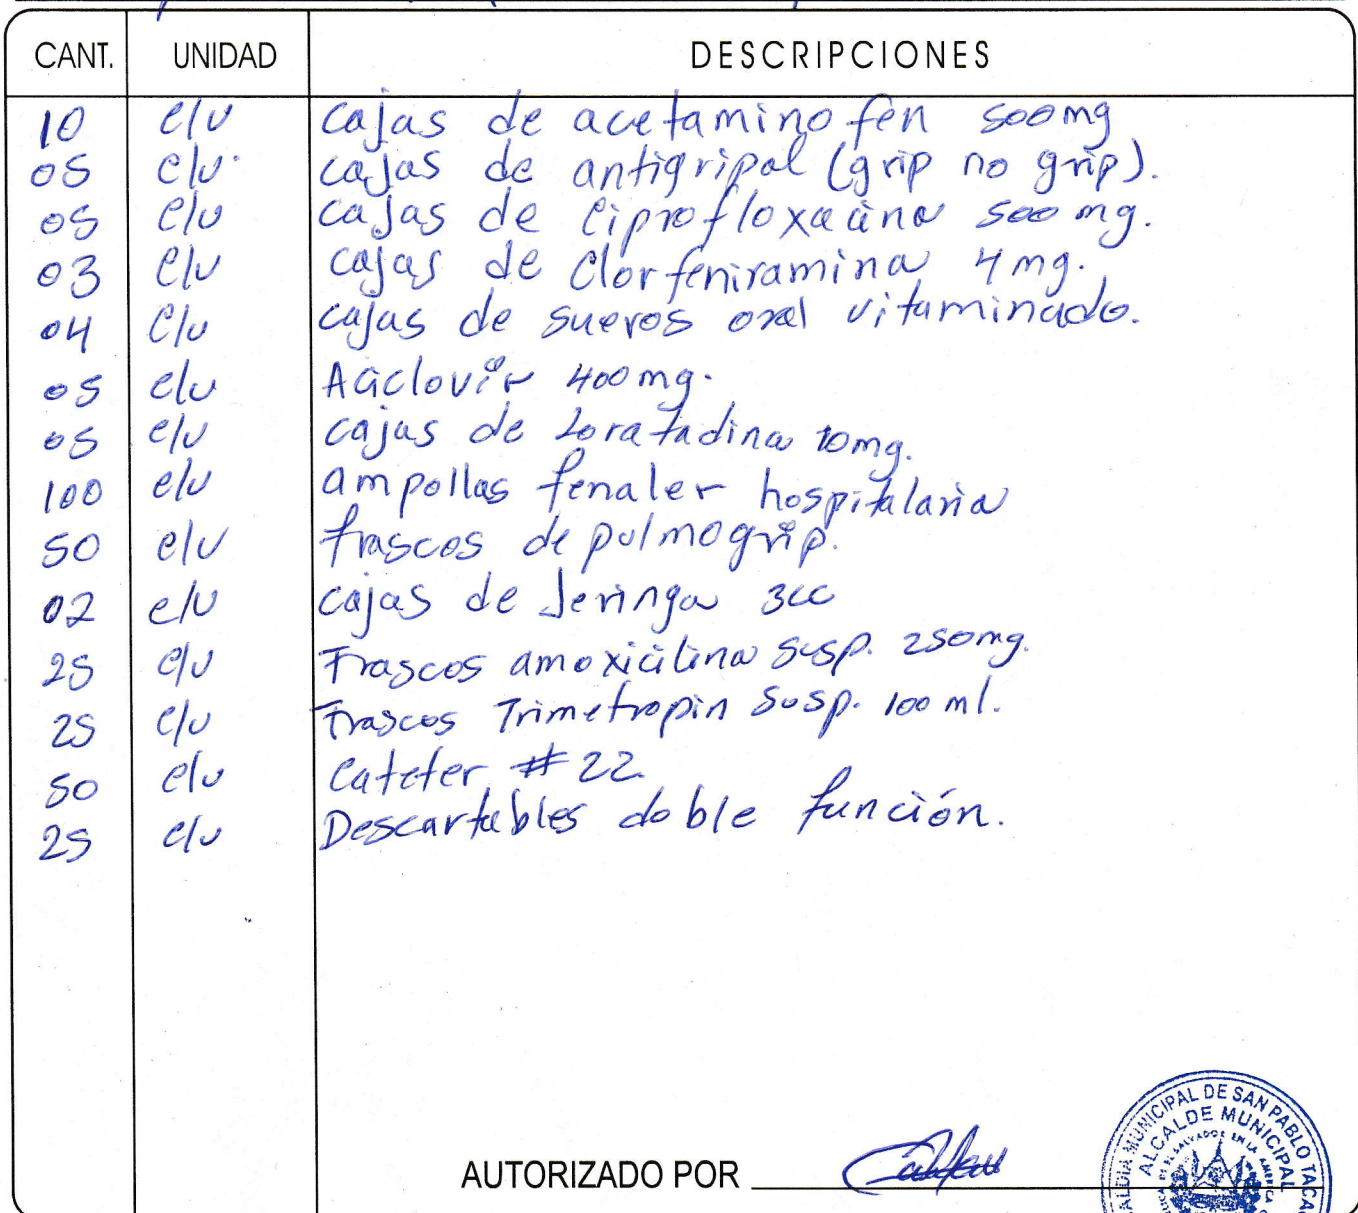 CANT. UNIDAD DESCRIPCIONES
10 c/u cajas de acetaminofén 500mg
05 c/u. cajas de antigripal (grip no grip).
05 c/u cajas de Ciprofloxacina 500 mg.
03 c/u cajas de Clorfeniramina 4 mg.
04 c/u cajas de sueros oral vitaminado.
05 c/u Aciclovir 400mg.
05 c/u cajas de Loratadina 10mg.
100 c/u ampollas fenaler hospitalaria
50 c/u frascos de pulmogrip.
02 c/u cajas de Jeringa 3cc
25 c/u Frascos amoxicilina susp. 250mg.
25 c/u Frascos Trimetropin Susp. 100 ml.
50 c/u Cateter #22
25 c/u Descartables doble función.
AUTORIZADO POR
ALCALDIA MUNICIPAL DE SAN PABLO TACA
ALCALDE MUNICIPAL
EL SALVADOR EN LA AMERICA